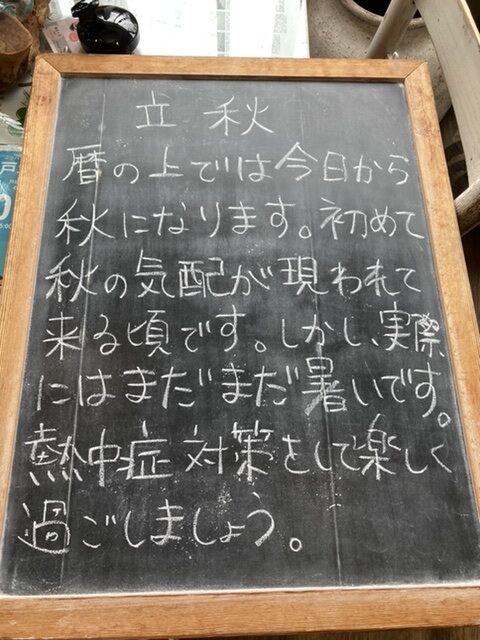 立秋
暦の上では今日から
秋になります。初めて
秋の気配が現われて
来る頃です。しかし、実際
にはまだまだ暑いです。
熱中症対策をして楽しく
過ごしましょう。